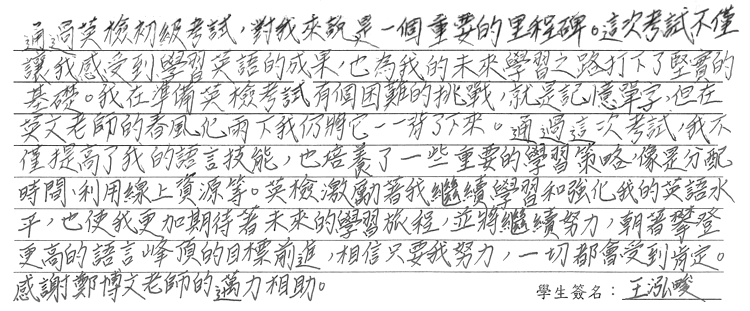 通過英檢初級考試,對我來說是一個重要的里程碑。這次考試不僅
讓我感受到學習英語的成果,也為我的未來學習之路打下了堅實的
基礎。我在準備英檢考試有個困難的挑戰,就是記憶單字,但在
英文老師的春風化雨下我仍將它一一背了下來。通過這次考試,我不
僅提高了我的語言技能,也培養了一些重要的學習策略,像是分配
時間、利用線上資源等。英檢激勵著我繼續學習和強化我的英語水
平,也使我更加期待著未來的學習旅程,並將繼續努力,朝著攀登
更高的語言峰頂的目標前進,相信只要我努力,一切都會受到肯定。
感謝鄭博文老師的鼎力相助。
學生簽名：王泓畯